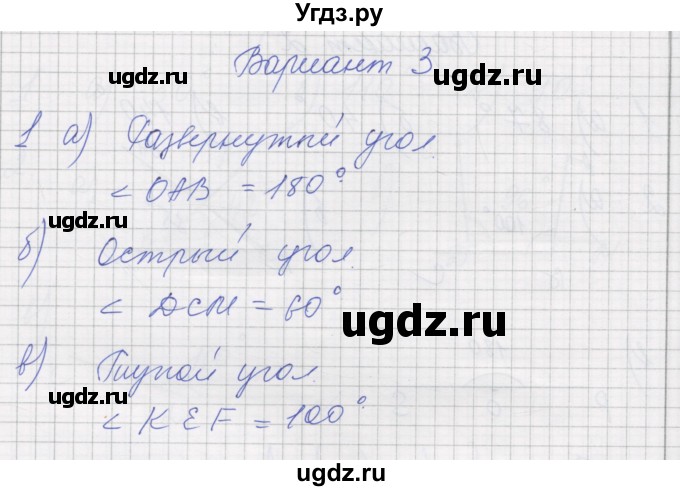 Угдз.ру
Вариант 3
ugdz.ru
1 а) Развернутый угол.
∠ OAB = 180°.
ugdz.ru
ugdz.ru
б) Острый угол.
∠ DCM = 60°
ugdz.ru
в) Тупой угол.
∠ KEF = 100°.
ugdz.ru
ugdz.ru